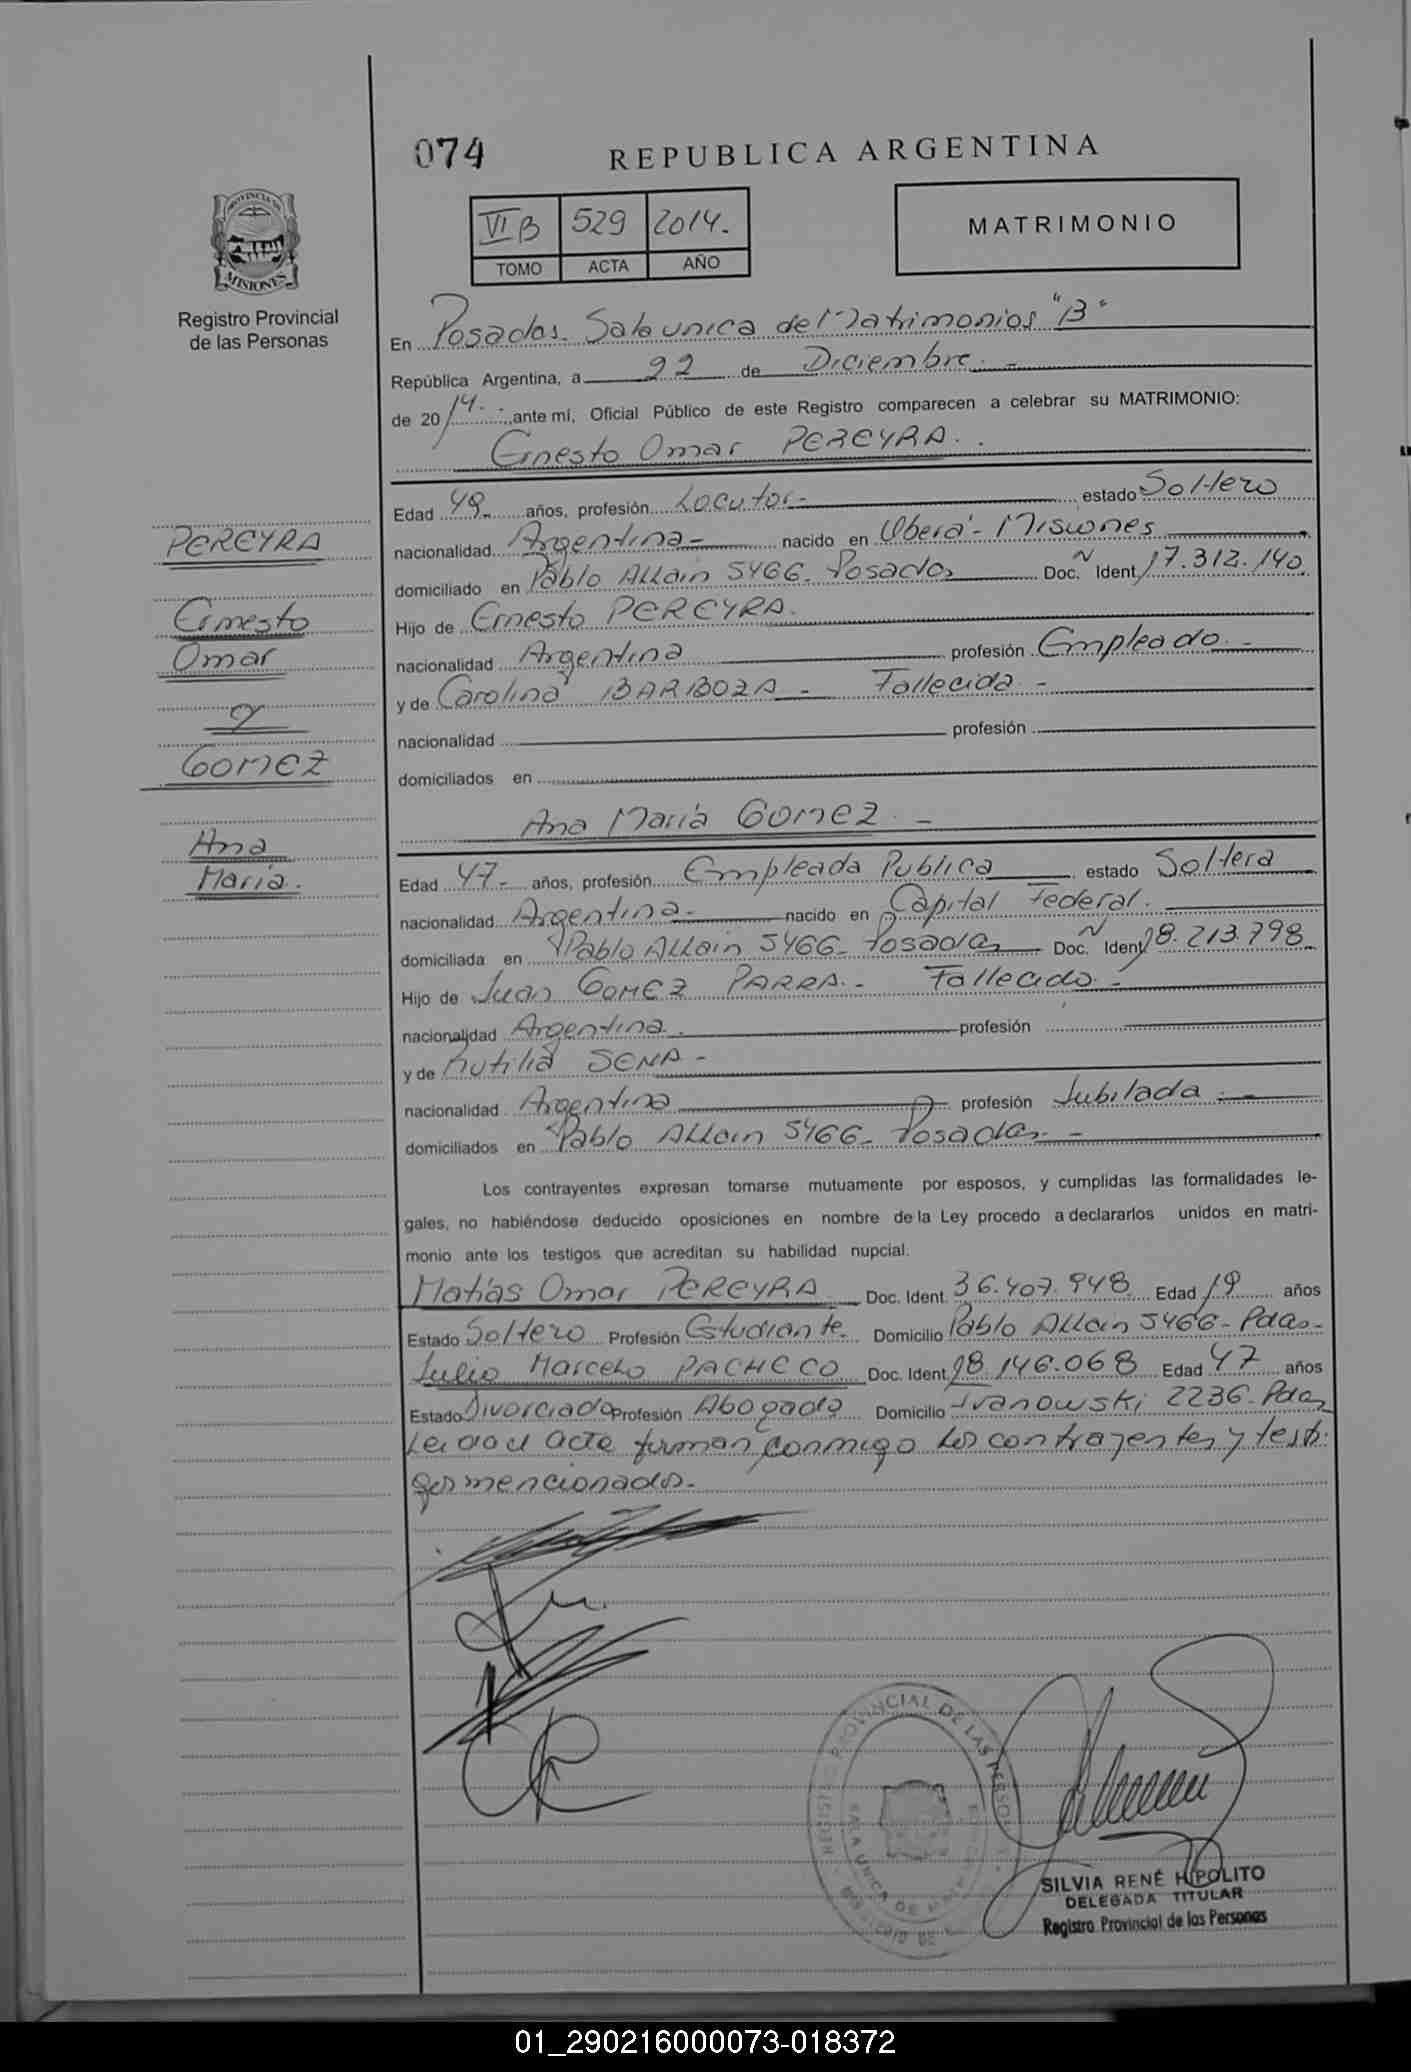 074
REPUBLICA ARGENTINA
VI B 529 2014.
TOMO ACTA AÑO
MATRIMONIO
PROVINCIA DE
MISIONES
Registro Provincial
de las Personas
En Posadas. Sala unica de Matrimonios "B"
República Argentina, a 22 de Diciembre. -
de 2014.- ante mí, Oficial Público de este Registro comparecen a celebrar su MATRIMONIO:
Ernesto Omar PEREYRA.
Edad 49 años, profesión Locutor- estado Soltero
nacionalidad Argentina- nacido en Oberá - Misiones
domiciliado en Pablo Allain 5466. Posadas Doc. N Ident 17.312.140
Hijo de Ernesto PEREYRA.
nacionalidad Argentina profesión Empleado. -
y de Carolina BARBOZA - Fallecida -
nacionalidad profesión
domiciliados en
PEREYRA
Ernesto
Omar
y
GOMEZ
Ana
María.
Ana María GOMEZ. -
Edad 47- años, profesión Empleada Publica estado Soltera
nacionalidad Argentina- nacido en Capital Federal.
domiciliada en Pablo Allain 5466- Posadas Doc. N Ident 18.213.798
Hijo de Juan GOMEZ PARRA.- Fallecido. -
nacionalidad Argentina. profesión
y de Rutilia SENA -
nacionalidad Argentina profesión Jubilada. -
domiciliados en Pablo Allain 5466- Posadas. -
Los contrayentes expresan tomarse mutuamente por esposos, y cumplidas las formalidades le-
gales, no habiéndose deducido oposiciones en nombre de la Ley procedo a declararlos unidos en matri-
monio ante los testigos que acreditan su habilidad nupcial.
Matías Omar PEREYRA Doc. Ident. 36.407.948 Edad 19 años
Estado Soltero Profesión Estudiante. Domicilio Pablo Allain 5466- Pdas-
Julio Marcelo PACHECO Doc. Ident. 18.146.068 Edad 47 años
Estado Divorciado Profesión Abogado Domicilio Ivanowski 2236- Pdas
Leida el acta firman conmigo los contrayentes y testi-
gos mencionados.
REGISTRO PROVINCIAL DE LAS PERSONAS
SALA UNICA DE
SILVIA RENÉ HIPOLITO
DELEGADA TITULAR
Registro Provincial de las Personas
01_290216000073-018372